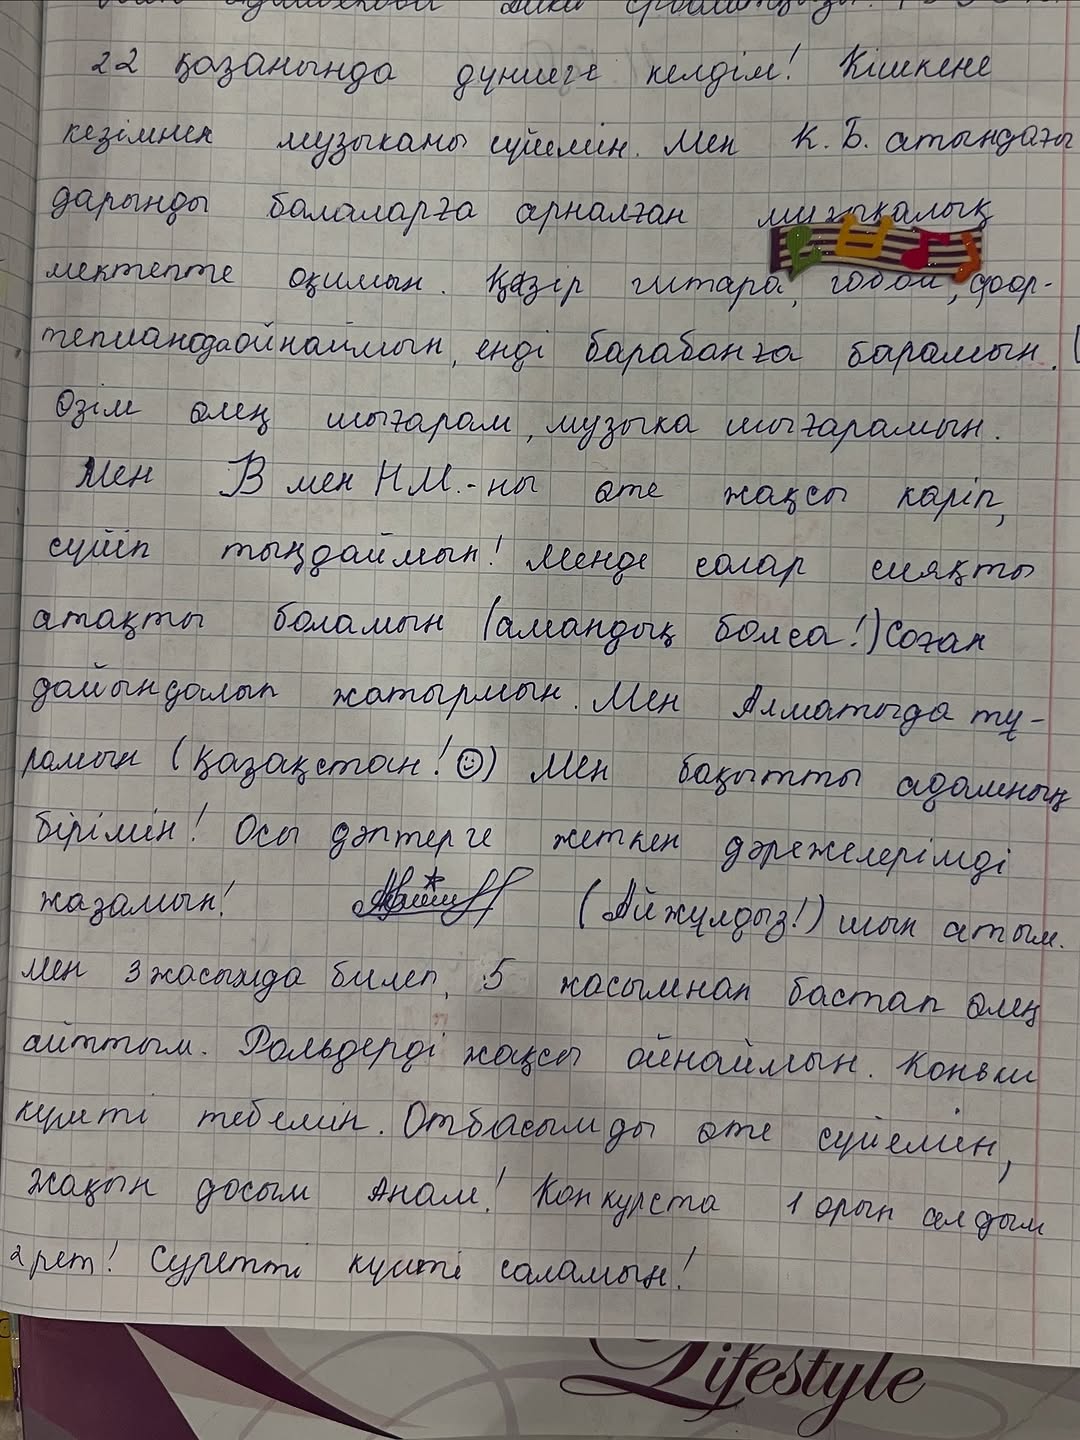 22 қазанында дүниеге келдім! Кішкене
кезімнен музыканы сүйемін. Мен К.Б. атындағы
дарынды балаларға арналған музыкалық
мектепте оқимын. Қазір гитара, гобой, фор-
тепианода ойнаймын, енді барабанға барамын.
Өзім өлең шығарам, музыка шығарамын.
Мен В мен НМ.-ны өте жақсы көріп,
сүйіп тыңдаймын! Менде солар сияқты
атақты боламын (амандық болса!) Соған
дайындалып жатырмын. Мен Алматыда тұ-
рамын (Қазақстан! ☺) Мен бақытты адамның
бірімін! Осы дәптерге жеткен дәрежелерімді
жазамын! (Айжұлдыз!) шын атым.
Мен 3 жасымда билеп, 5 жасымнан бастап өлең
айттым. Рольдерді жақсы ойнаймын. Коньки
күшті тебемін. Отбасымды өте сүйемін,
жақын досым Анам! Конкурста 1 орын алдым
2 рет! Суретті күшті саламын!
Lifestyle